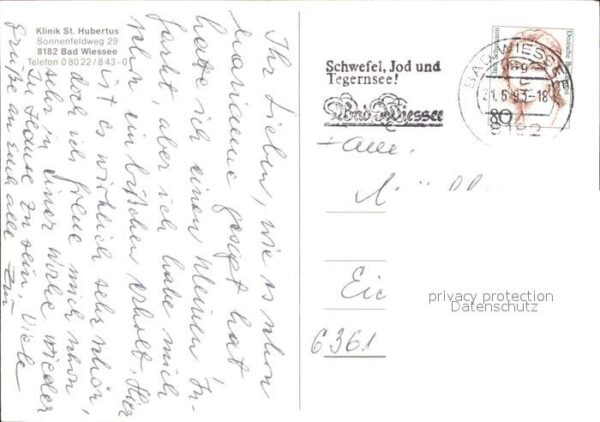 Klinik St. Hubertus
Sonnenfeldweg 29
8182 Bad Wiessee
Telefon 0 80 22 / 8 43-0
Ihr Lieben, wie es schon
Marianne gesagt hat
hatte ich einen kleinen In-
farkt, aber ich habe mich
schon ein bißchen erholt, Hier
ist es wirklich sehr schön,
doch ich freue mich schon
sehr in einer Woche wieder
zu Hause zu sein Viele
Grüße an Euch alle
Schwefel, Jod und
Tegernsee!
Bad Wiessee
BAD WIESSEE
21.6.93-18
8182
Deutsche Bundespost
80
Eic
6361
privacy protection
Datenschutz